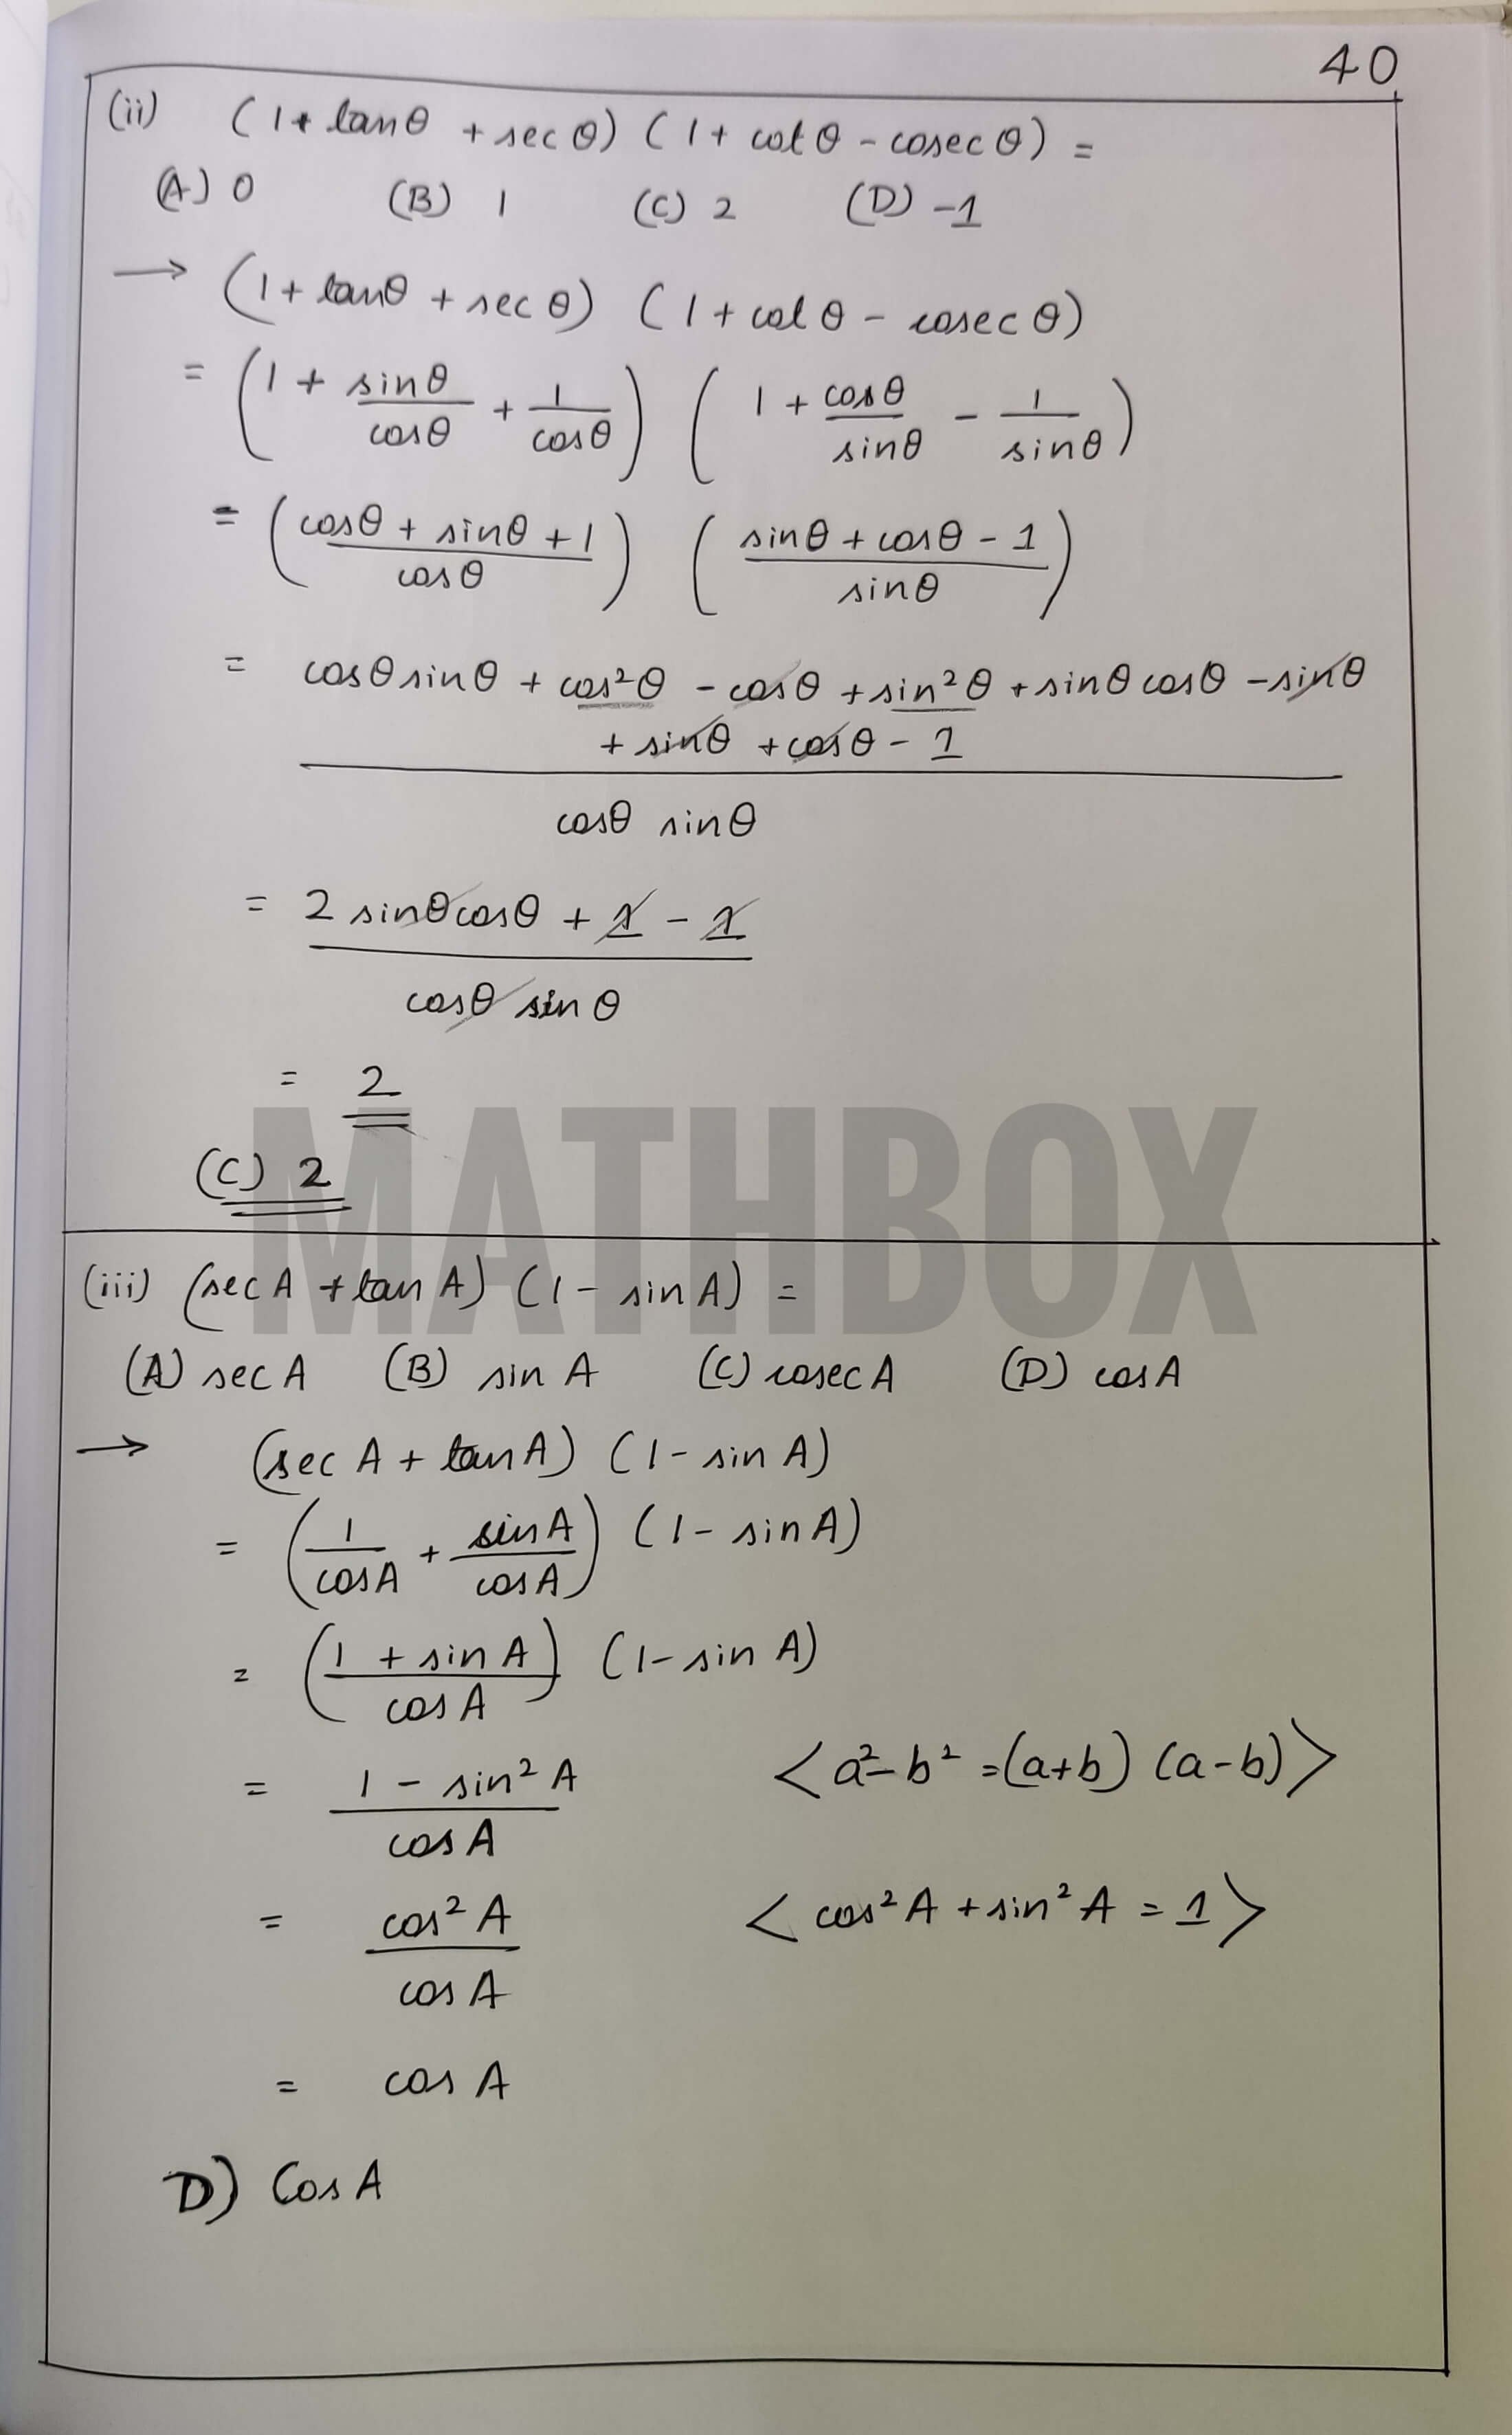 40
(ii) (1 + tanθ + sec θ) (1 + cot θ - cosec θ) =
(A) 0 (B) 1 (C) 2 (D) -1
→ (1 + tanθ + sec θ) (1 + cot θ - cosec θ)
= (1 + sinθ/cosθ + 1/cosθ) (1 + cosθ/sinθ - 1/sinθ)
= ((cosθ + sinθ + 1)/cosθ) ((sinθ + cosθ - 1)/sinθ)
= cosθ sinθ + cos²θ - cosθ + sin²θ + sinθ cosθ - sinθ
+ sinθ + cosθ - 1
cosθ sinθ
= 2 sinθ cosθ + 1 - 1
cosθ sin θ
= 2
(C) 2
MATHBOX
(iii) (sec A + tan A) (1 - sin A) =
(A) sec A (B) sin A (C) cosec A (D) cos A
→ (sec A + tan A) (1 - sin A)
= (1/cos A + sin A/cos A) (1 - sin A)
= ((1 + sin A)/cos A) (1 - sin A)
= (1 - sin² A)/cos A <a² - b² = (a+b) (a-b)>
= cos² A/cos A <cos² A + sin² A = 1>
= cos A
D) Cos A